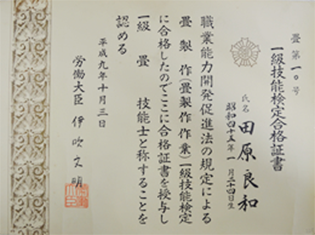 畳第一〇号
一級技能検定合格証書
氏名 田原良和
昭和四十五年一月二十四日生
職業能力開発促進法の規定による
畳製作(畳製作作業)一級技能検定
に合格したのでここに合格証書を授与し
一級 畳 技能士と称することを
認める
平成九年十月三日
労働大臣 伊吹文明